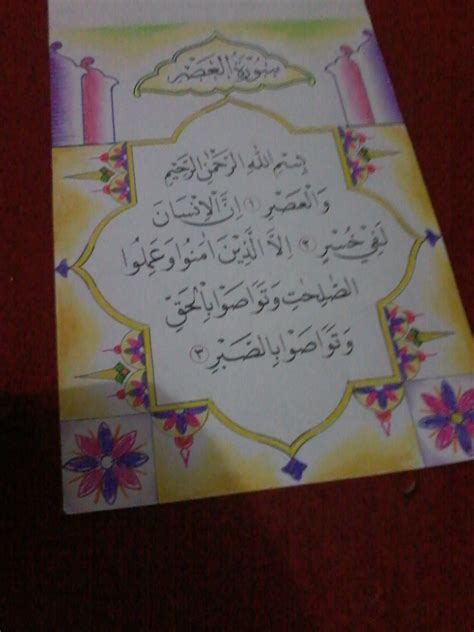 سُوْرَةُ الْعَصْرِ
بِسْمِ اللهِ الرَّحْمٰنِ الرَّحِيْمِ
وَالْعَصْرِ ١ اِنَّ الْاِنْسَانَ
لَفِيْ خُسْرٍ ٢ اِلَّا الَّذِيْنَ اٰمَنُوْا وَعَمِلُوا
الصّٰلِحٰتِ وَتَوَاصَوْا بِالْحَقِّ
وَتَوَاصَوْا بِالصَّبْرِ ٣